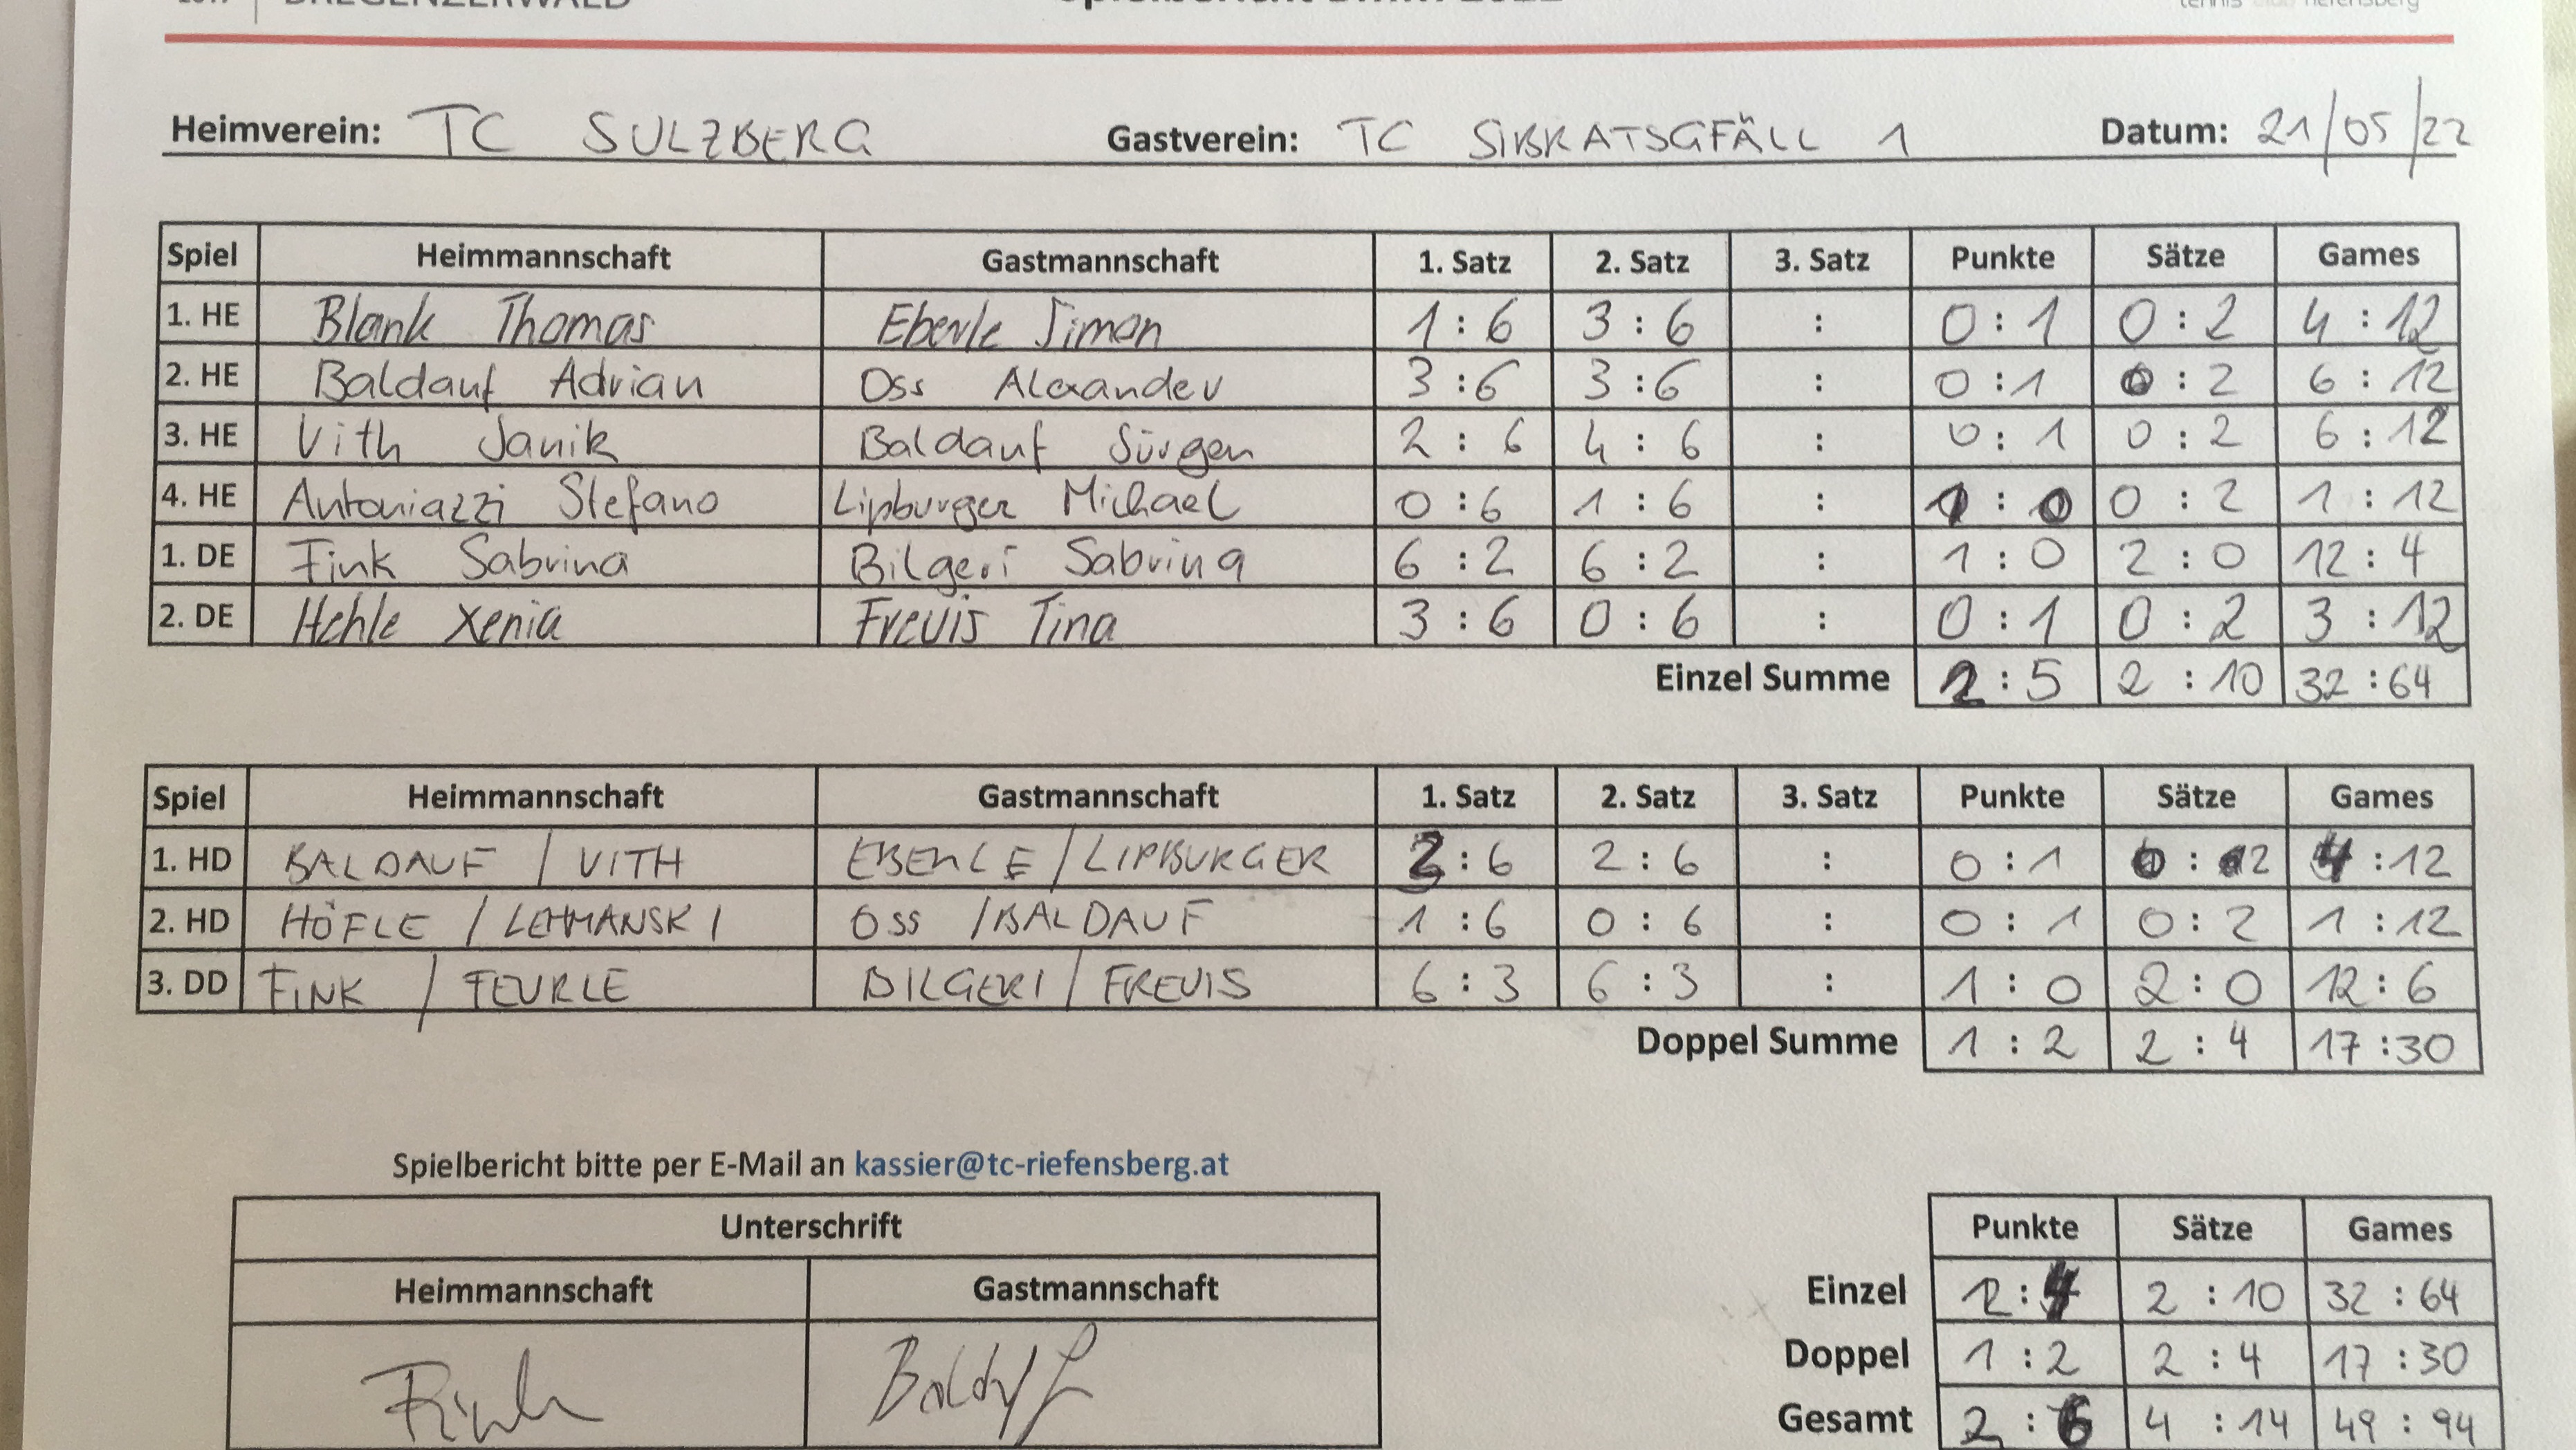 Heimverein: TC SULZBERG Gastverein: TC SIBRATSGFÄLL 1 Datum: 21/05/22
Spiel Heimmannschaft Gastmannschaft 1. Satz 2. Satz 3. Satz Punkte Sätze Games
1. HE Blank Thomas Eberle Simon 1 : 6 3 : 6 : 0 : 1 0 : 2 4 : 12
2. HE Baldauf Adrian Oss Alexander 3 : 6 3 : 6 : 0 : 1 0 : 2 6 : 12
3. HE Vith Janik Baldauf Jürgen 2 : 6 4 : 6 : 0 : 1 0 : 2 6 : 12
4. HE Antoniazzi Stefano Lipburger Michael 0 : 6 1 : 6 : : 0 : 2 1 : 12
1. DE Fink Sabrina Bilgeri Sabrina 6 : 2 6 : 2 : 1 : 0 2 : 0 12 : 4
2. DE Hehle Xenia Freuis Tina 3 : 6 0 : 6 : 0 : 1 0 : 2 3 : 12
Einzel Summe 2 : 5 2 : 10 32 : 64
Spiel Heimmannschaft Gastmannschaft 1. Satz 2. Satz 3. Satz Punkte Sätze Games
1. HD BALDAUF / VITH EBERLE / LIPBURGER 2 : 6 2 : 6 : 0 : 1 0 : 2 4 : 12
2. HD HÖFLE / LEHMANSKI OSS / BALDAUF 1 : 6 0 : 6 : 0 : 1 0 : 2 1 : 12
3. DD FINK / FEURLE BILGERI / FREUIS 6 : 3 6 : 3 : 1 : 0 2 : 0 12 : 6
Doppel Summe 1 : 2 2 : 4 17 : 30
Spielbericht bitte per E-Mail an kassier@tc-riefensberg.at
Unterschrift
Heimmannschaft Gastmannschaft
Punkte Sätze Games
Einzel 2 : 4 2 : 10 32 : 64
Doppel 1 : 2 2 : 4 17 : 30
Gesamt 2 : 6 4 : 14 49 : 94